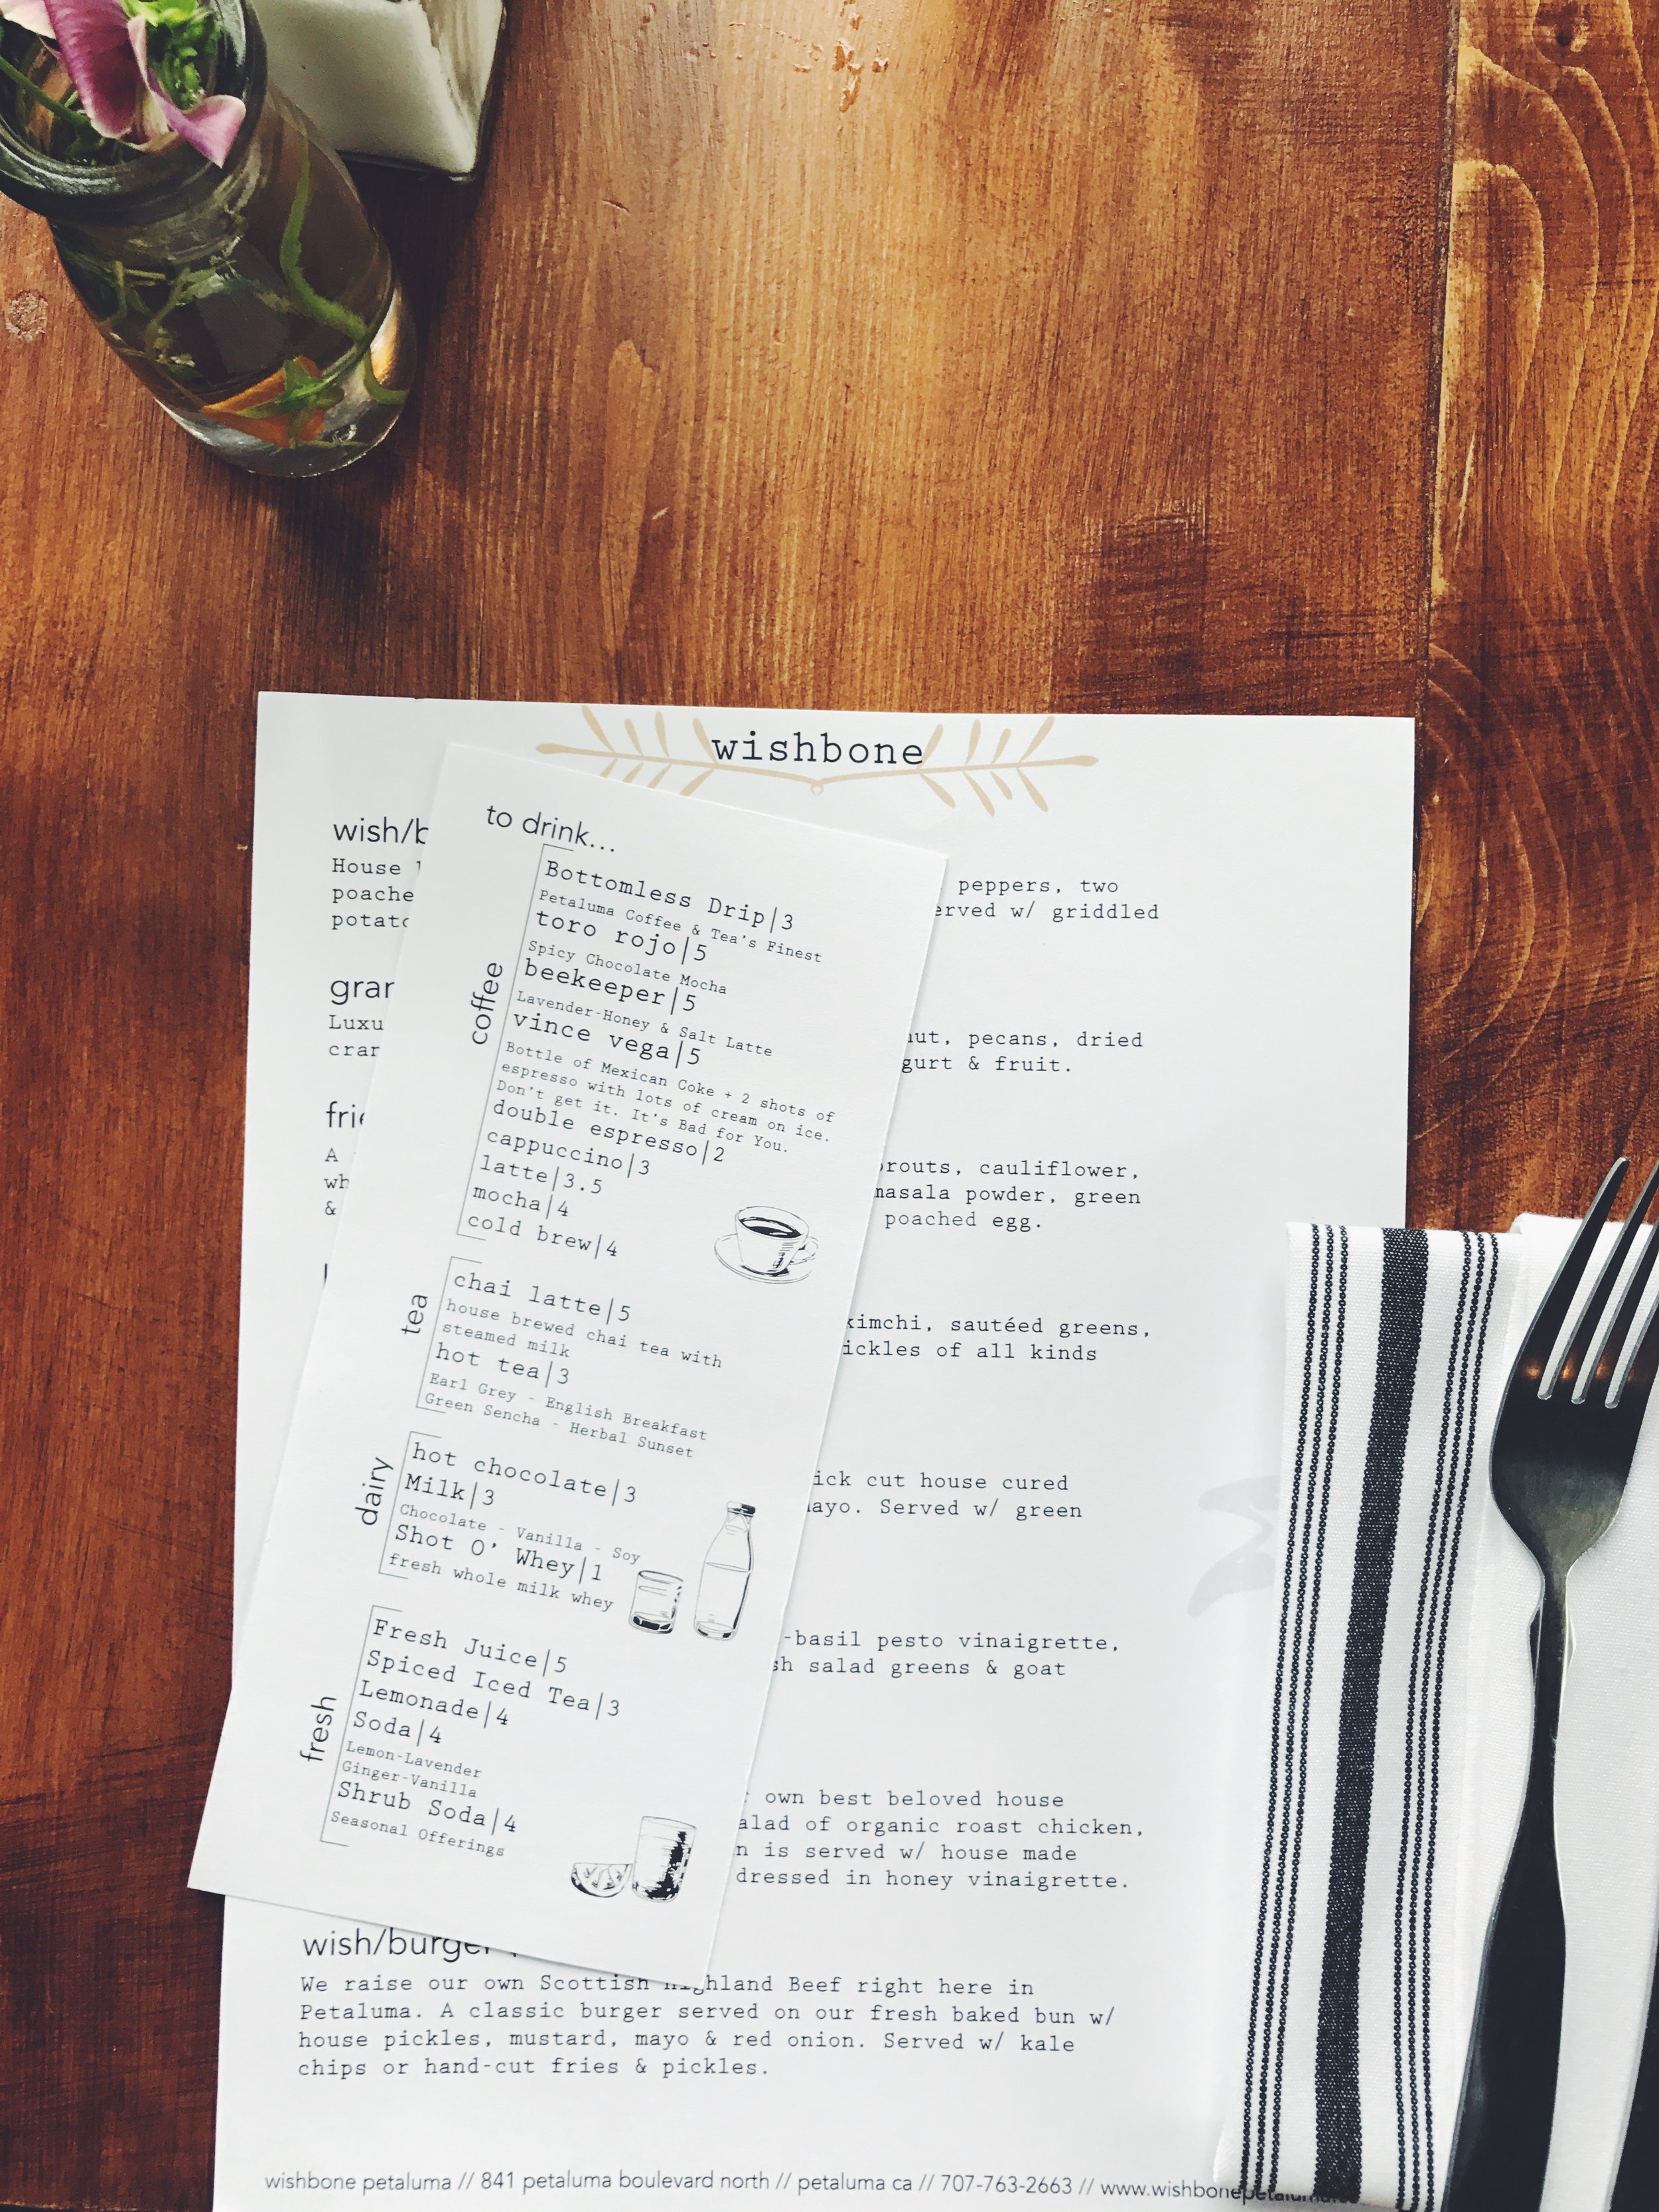 wishbone
to drink...
coffee
Bottomless Drip|3
Petaluma Coffee & Tea's Finest
toro rojo|5
Spicy Chocolate Mocha
beekeeper|5
Lavender-Honey & Salt Latte
vince vega|5
Bottle of Mexican Coke + 2 shots of
espresso with lots of cream on ice.
Don't get it. It's Bad for You.
double espresso|2
cappuccino|3
latte|3.5
mocha|4
cold brew|4
tea
chai latte|5
house brewed chai tea with
steamed milk
hot tea|3
Earl Grey - English Breakfast
Green Sencha - Herbal Sunset
dairy
hot chocolate|3
Milk|3
Chocolate - Vanilla - Soy
Shot O' Whey|1
fresh whole milk whey
fresh
Fresh Juice|5
Spiced Iced Tea|3
Lemonade|4
Soda|4
Lemon-Lavender
Ginger-Vanilla
Shrub Soda|4
Seasonal Offerings
wish/b
House
poache
potato
peppers, two
erved w/ griddled
gran
Luxu
cran
ut, pecans, dried
gurt & fruit.
frie
A
wh
&
prouts, cauliflower,
masala powder, green
poached egg.
kimchi, sautéed greens,
ickles of all kinds
ick cut house cured
mayo. Served w/ green
-basil pesto vinaigrette,
sh salad greens & goat
own best beloved house
alad of organic roast chicken,
n is served w/ house made
dressed in honey vinaigrette.
wish/burger
We raise our own Scottish Highland Beef right here in
Petaluma. A classic burger served on our fresh baked bun w/
house pickles, mustard, mayo & red onion. Served w/ kale
chips or hand-cut fries & pickles.
wishbone petaluma // 841 petaluma boulevard north // petaluma ca // 707-763-2663 // www.wishbonepetaluma.